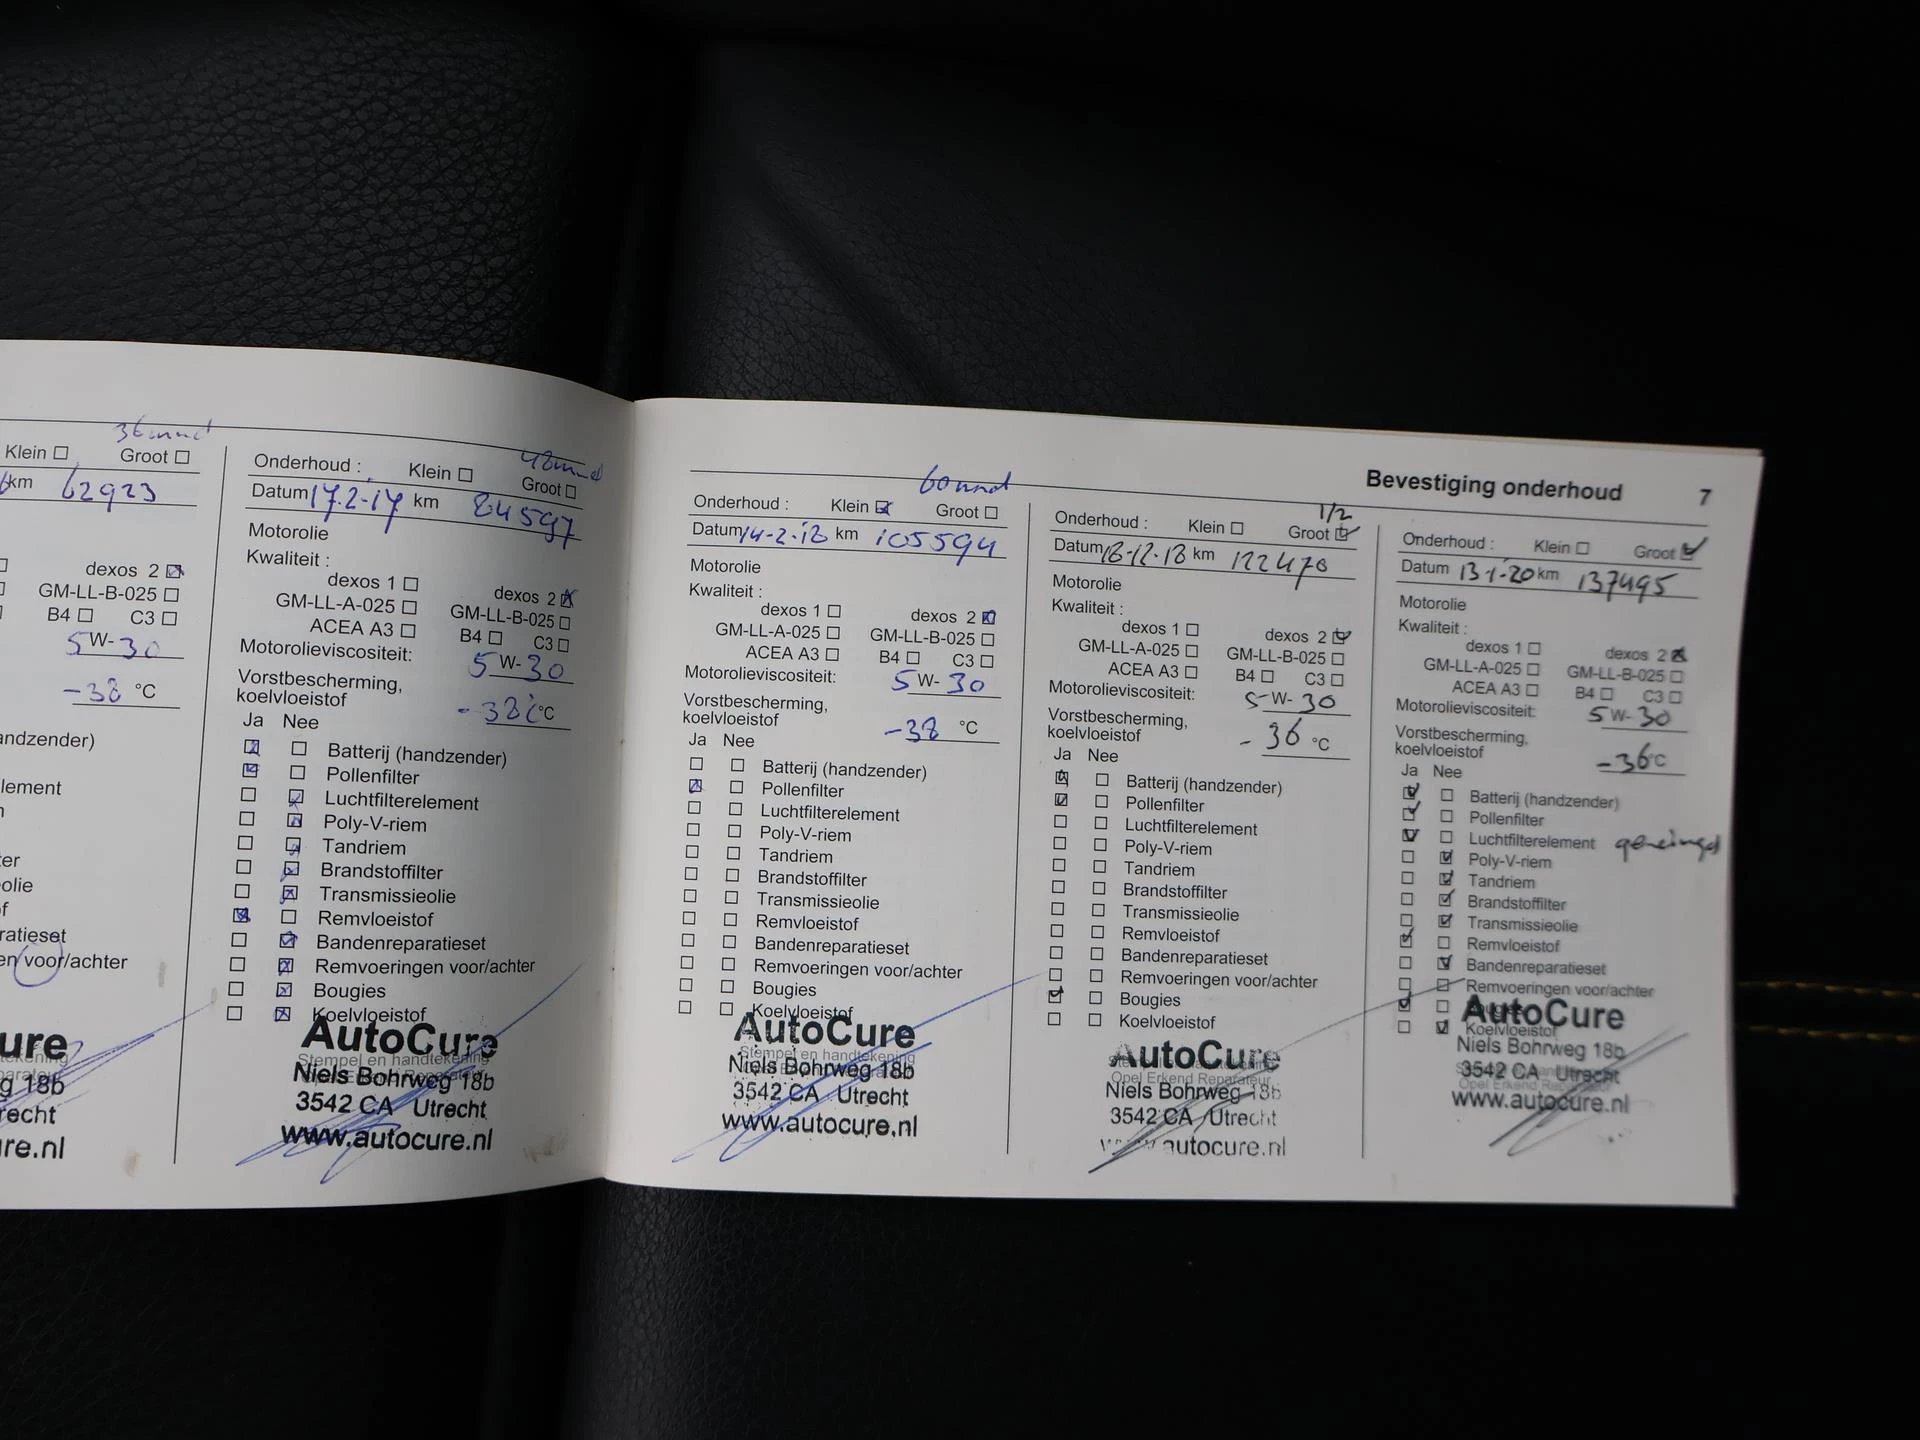 36mnd
Klein ☐ Groot ☐
km 62923
dexos 2 ☒
GM-LL-B-025 ☐
B4 ☐ C3 ☐
5 W-30
-38 °C
andzender)
lement
er
olie
f
ratieset
en voor/achter
ure
g 18b
recht
re.nl
48mnd
Onderhoud : Klein ☐ Groot ☐
Datum 17.2.17 km 84597
Motorolie
Kwaliteit :
dexos 1 ☐ dexos 2 ☒
GM-LL-A-025 ☐ GM-LL-B-025 ☐
ACEA A3 ☐ B4 ☐ C3 ☐
Motorolieviscositeit: 5 W-30
Vorstbescherming,
koelvloeistof -38 °C
Ja Nee
☒ ☐ Batterij (handzender)
☒ ☐ Pollenfilter
☐ ☒ Luchtfilterelement
☐ ☒ Poly-V-riem
☐ ☒ Tandriem
☐ ☒ Brandstoffilter
☐ ☒ Transmissieolie
☒ ☐ Remvloeistof
☐ ☒ Bandenreparatieset
☐ ☒ Remvoeringen voor/achter
☐ ☒ Bougies
☐ ☒ Koelvloeistof
AutoCure
Stempel en handtekening
Niels Bohrweg 18b
3542 CA Utrecht
www.autocure.nl
Bevestiging onderhoud 7
60mnd
Onderhoud : Klein ☒ Groot ☐
Datum 14-2-18 km 105594
Motorolie
Kwaliteit :
dexos 1 ☐ dexos 2 ☒
GM-LL-A-025 ☐ GM-LL-B-025 ☐
ACEA A3 ☐ B4 ☐ C3 ☐
Motorolieviscositeit: 5 W-30
Vorstbescherming,
koelvloeistof -38 °C
Ja Nee
☐ ☐ Batterij (handzender)
☒ ☐ Pollenfilter
☐ ☐ Luchtfilterelement
☐ ☐ Poly-V-riem
☐ ☐ Tandriem
☐ ☐ Brandstoffilter
☐ ☐ Transmissieolie
☐ ☐ Remvloeistof
☐ ☐ Bandenreparatieset
☐ ☐ Remvoeringen voor/achter
☐ ☐ Bougies
☐ ☐ Koelvloeistof
AutoCure
Stempel en handtekening
Niels Bohrweg 18b
3542 CA Utrecht
www.autocure.nl
1/2
Onderhoud : Klein ☐ Groot ☑
Datum 18-12-18 km 122470
Motorolie
Kwaliteit :
dexos 1 ☐ dexos 2 ☑
GM-LL-A-025 ☐ GM-LL-B-025 ☐
ACEA A3 ☐ B4 ☐ C3 ☐
Motorolieviscositeit: 5 W-30
Vorstbescherming,
koelvloeistof -36 °C
Ja Nee
☑ ☐ Batterij (handzender)
☑ ☐ Pollenfilter
☐ ☐ Luchtfilterelement
☐ ☐ Poly-V-riem
☐ ☐ Tandriem
☐ ☐ Brandstoffilter
☐ ☐ Transmissieolie
☐ ☐ Remvloeistof
☐ ☐ Bandenreparatieset
☐ ☐ Remvoeringen voor/achter
☑ ☐ Bougies
☐ ☐ Koelvloeistof
AutoCure
Opel Erkend Reparateur
Niels Bohrweg 18b
3542 CA Utrecht
www.autocure.nl
Onderhoud : Klein ☐ Groot ☑
Datum 13-1-20 km 137495
Motorolie
Kwaliteit :
dexos 1 ☐ dexos 2 ☒
GM-LL-A-025 ☐ GM-LL-B-025 ☐
ACEA A3 ☐ B4 ☐ C3 ☐
Motorolieviscositeit: 5 W-30
Vorstbescherming,
koelvloeistof -36 °C
Ja Nee
☑ ☐ Batterij (handzender)
☑ ☐ Pollenfilter
☑ ☐ Luchtfilterelement
☐ ☑ Poly-V-riem
☐ ☑ Tandriem
☐ ☑ Brandstoffilter
☐ ☑ Transmissieolie
☑ ☐ Remvloeistof
☐ ☑ Bandenreparatieset
☐ ☐ Remvoeringen voor/achter
☑ ☐ Bougies
☐ ☑ Koelvloeistof
AutoCure
Niels Bohrweg 18b
3542 CA Utrecht
www.autocure.nl